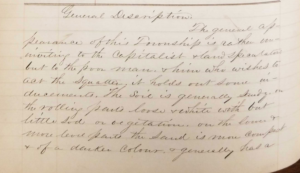 General Description.
The general ap
pearance of this Township is rather in
to the Capitalist & land Speculator
but to the poor man & him who wishes to
act the Squatter it holds out some in
ducements. The Soil is generally Sandy. on
the rolling parts loose & white with but
little Sod or vegetation. on the lower &
more level parts the Sand is more compact
& of a darker Colour. & generally has a